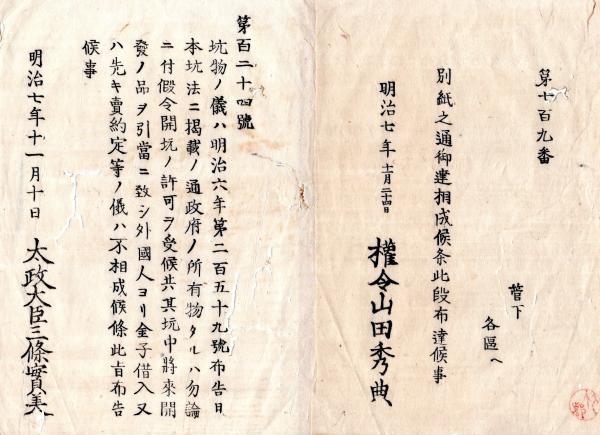 第七百九番
管下
各區へ
別紙之通御達相成候条此段布達候事
明治七年十一月二十四日
權令山田秀典
第百二十四號
坑物ノ儀ハ明治六年第二百五十九號布告日
本坑法ニ掲載ノ通政府ノ所有物タルハ勿論
ニ付假令開坑ノ許可ヲ受候共其坑中將來開
發ノ品ヲ引當ニ致シ外國人ヨリ金子借入又
ハ先キ賣約定等ノ儀ハ不相成候條此旨布告
候事
明治七年十一月十日
太政大臣三條實美